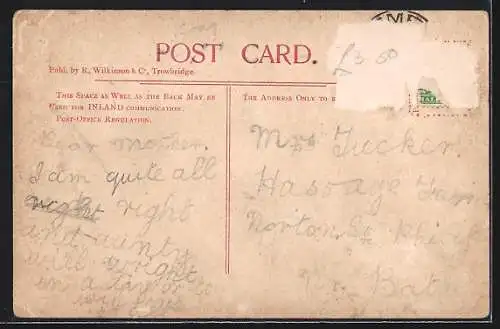 POST CARD.
£3.50
Publ. by R. Wilkinson & Co, Trowbridge.
THIS SPACE AS WELL AS THE BACK MAY BE
USED FOR INLAND COMMUNICATION.
POST-OFFICE REGULATION.
THE ADDRESS ONLY TO
Dear Mother.
I am quite all
right
and aunty
will wright
in a day or to
Mrs Tucker.
Hassage
Norton St
Nr. Bath